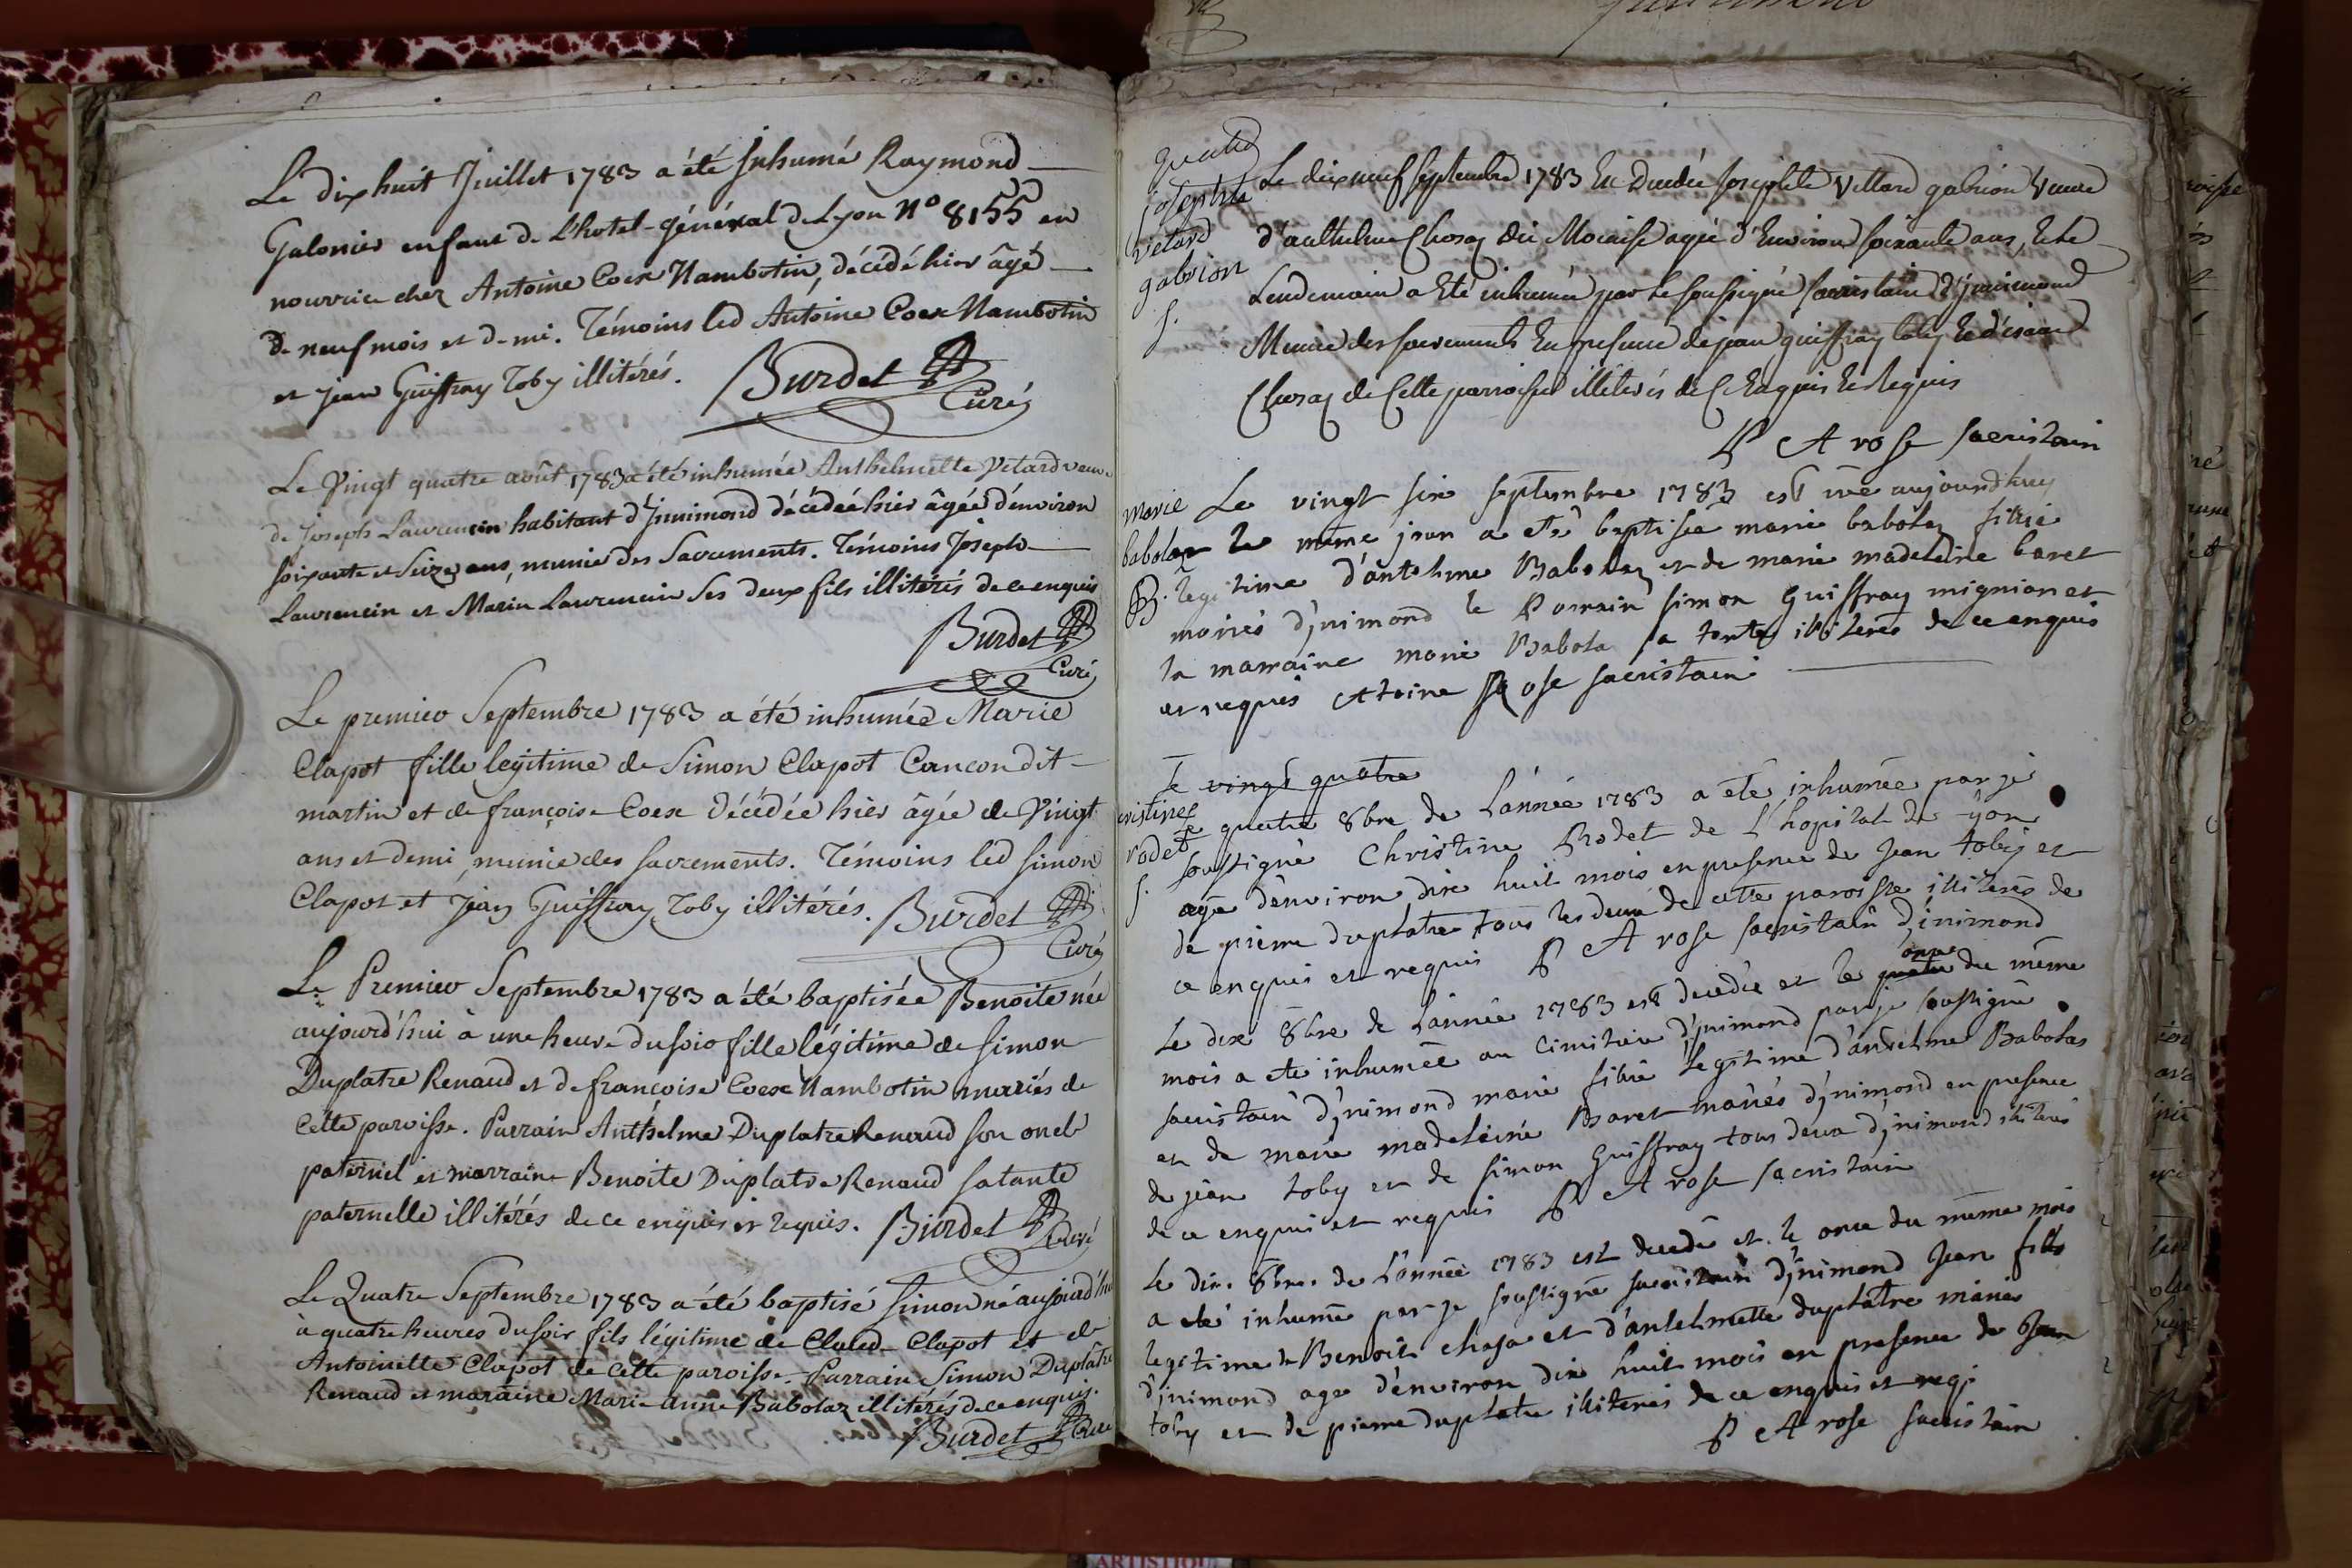 Le dix huit Juillet 1783 a été Inhumé Raymond
Galonier enfant de L'hotel-général de Lyon N° 8155 en
nourrice chez Antoine Coex Nambotin, décédé hier âgé
de neuf mois et demi. Témoins led Antoine Coex Nambotin
et jean Guiffray Toby illitérés. Burdet
Curé
Le Vingt quatre août 1783 a été inhumée Anthelmette Vetard veuve
de Joseph Laurencin habitant d'Jnnimond décédée hier âgée d'environ
soixante et seize ans, munie des Sacrements. Témoins Joseph
Laurencin et Marin Laurencin ses deux fils illitérés de ce enquis
Burdet
Curé
Le premier Septembre 1783 a été inhumée Marie
Clapot fille legitime de Simon Clapot Cancon dit
martin et de françoise Coex décédée hier âgée de Vingt
ans et demi, munie des sacrements. Témoins led simon
Clapot et Jean Guiffray Toby illitérés. Burdet
Curé
Le Premier Septembre 1783 a été baptisée Benoite née
aujourd'hui à une heure du soir fille légitime de simon
Duplatre Renaud et de françoise Coex Nambotin mariés de
Cette paroisse. Parrain Anthelme Duplatre Renaud son oncle
paternel et marraine Benoite Duplatre Renaud sa tante
paternelle illitérés de ce enquis et requis. Burdet
Curé
Le Quatre Septembre 1783 a été baptisé simon né aujourd'hui
à quatre heures du soir fils légitime de Claude Clapot et de
Antoinette Clapot de cette paroisse. Parrain Simon Duplâtre
Renaud et maraine Marie anne Babolaz illitérés de ce enquis.
Burdet Curé
josephte
vetard
gabrion
s.
Le dix neuf septembre 1783 Est Decedée josephte Vettard gabrion Veuve
d'anthelme Chosaz dit Mocaise agée d'Environ soixante ans, Et le
Lendemain a Eté inhumée par le soussigné sacristain d'jnnimond
Munie des sacrements En presence de jean guiffray toby Et d'
Chosaz de Cette parroisse illiterés de Ce Enquis Et Requis
P A rose sacristain
marie
babolaz
B.
Le vingt six septembre 1783 est née aujourdhuy
le meme jour a eté baptisée marie babolaz fillie
legitime d'antelme Babolaz et de marie madeleine baret
mariés d'jnimond le Parrain simon Guiffray mignion et
la marraine marie Babola sa tante illiterés de ce enquis
et requis Atoine Rose sacristain
Le vingt quatre
cristine
rodet
s.
Le quatre 8bre de L'année 1783 a eté inhumée par je
soussigné Christine Rodet de L'hopital de yon
agee d'environ dix huit mois en presence de jean toby et
de pierre duplatre tous les deux de cette paroisse illiterés de
ce enquis et requis P A rose sacristain d'inimond
Le dix 8bre de L'année 1783 est decedée et le quatre onze du même
mois a eté inhumée au cimitiere d'jnimond par je soussigné
sacristain d'jnimond marie fillie legitime d'antelme Babolas
et de marie madeleine Baret mariés d'jnimond en presence
de jean toby et de simon Guiffray tous deux d'jnimond illiterés
de ce enquis et requis P A rose sacristain
Le dix 8bre de L'année 1783 est decedé et le onze du même mois
a eté inhumé par je soussigné sacristain d'jnimond Jean fils
legitime de Benoit chosa et d'antelmette duplatre mariés
d'jnimond age d'environ dix huit mois en presence de Jean
toby et de pierre duplatre illiterés de ce enquis et reqi
P A rose sacristain
ARTISTIQUE